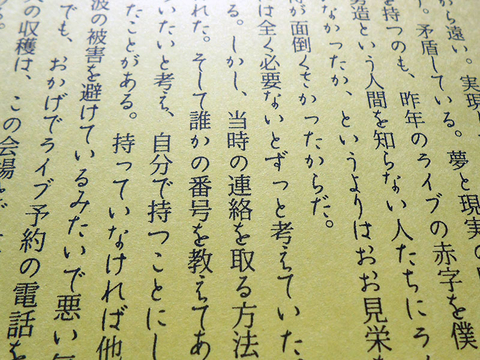 から遠い。実現し
。矛盾している。夢と現実の
を持つのも、昨年のライブの赤字を僕
造という人間を知らない人たちにろ
なかったか、というよりはおお見栄
が面倒くさかったからだ。
は全く必要ないとずっと考えていた
る。しかし、当時の連絡を取る方法
れた。そして誰かの番号を教えてあ
いたいと考え、自分で持つことにし
たことがある。持っていなければ他
波の被害を避けているみたいで悪い
でも、おかげでライブ予約の電話を
の収穫は、この会場